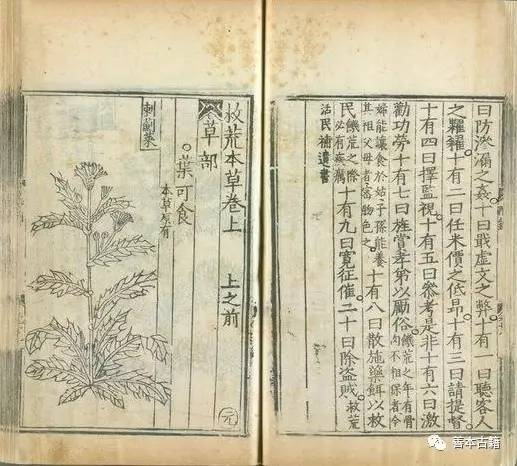 曰防淤漏之姦十曰戢虛文之弊十有一曰聽客人
之糶糴十有二曰任米價之低昻十有三曰請提督
十有四曰擇監視十有五曰參考是非十有六曰激
勸功勞十有七曰旌孝弟以勵俗饑荒之年有骨肉不相保者令
婦能讓食於姑子孫能養其祖父母者當物色之十有八曰散施藥餌以救
民饑荒之際必有疾癘十有九曰寬征催二十曰除盜賊救荒
活民補遺書
救荒本草卷上 上之前
草部
葉可食
本草原有
刺薊菜
元
善本古籍